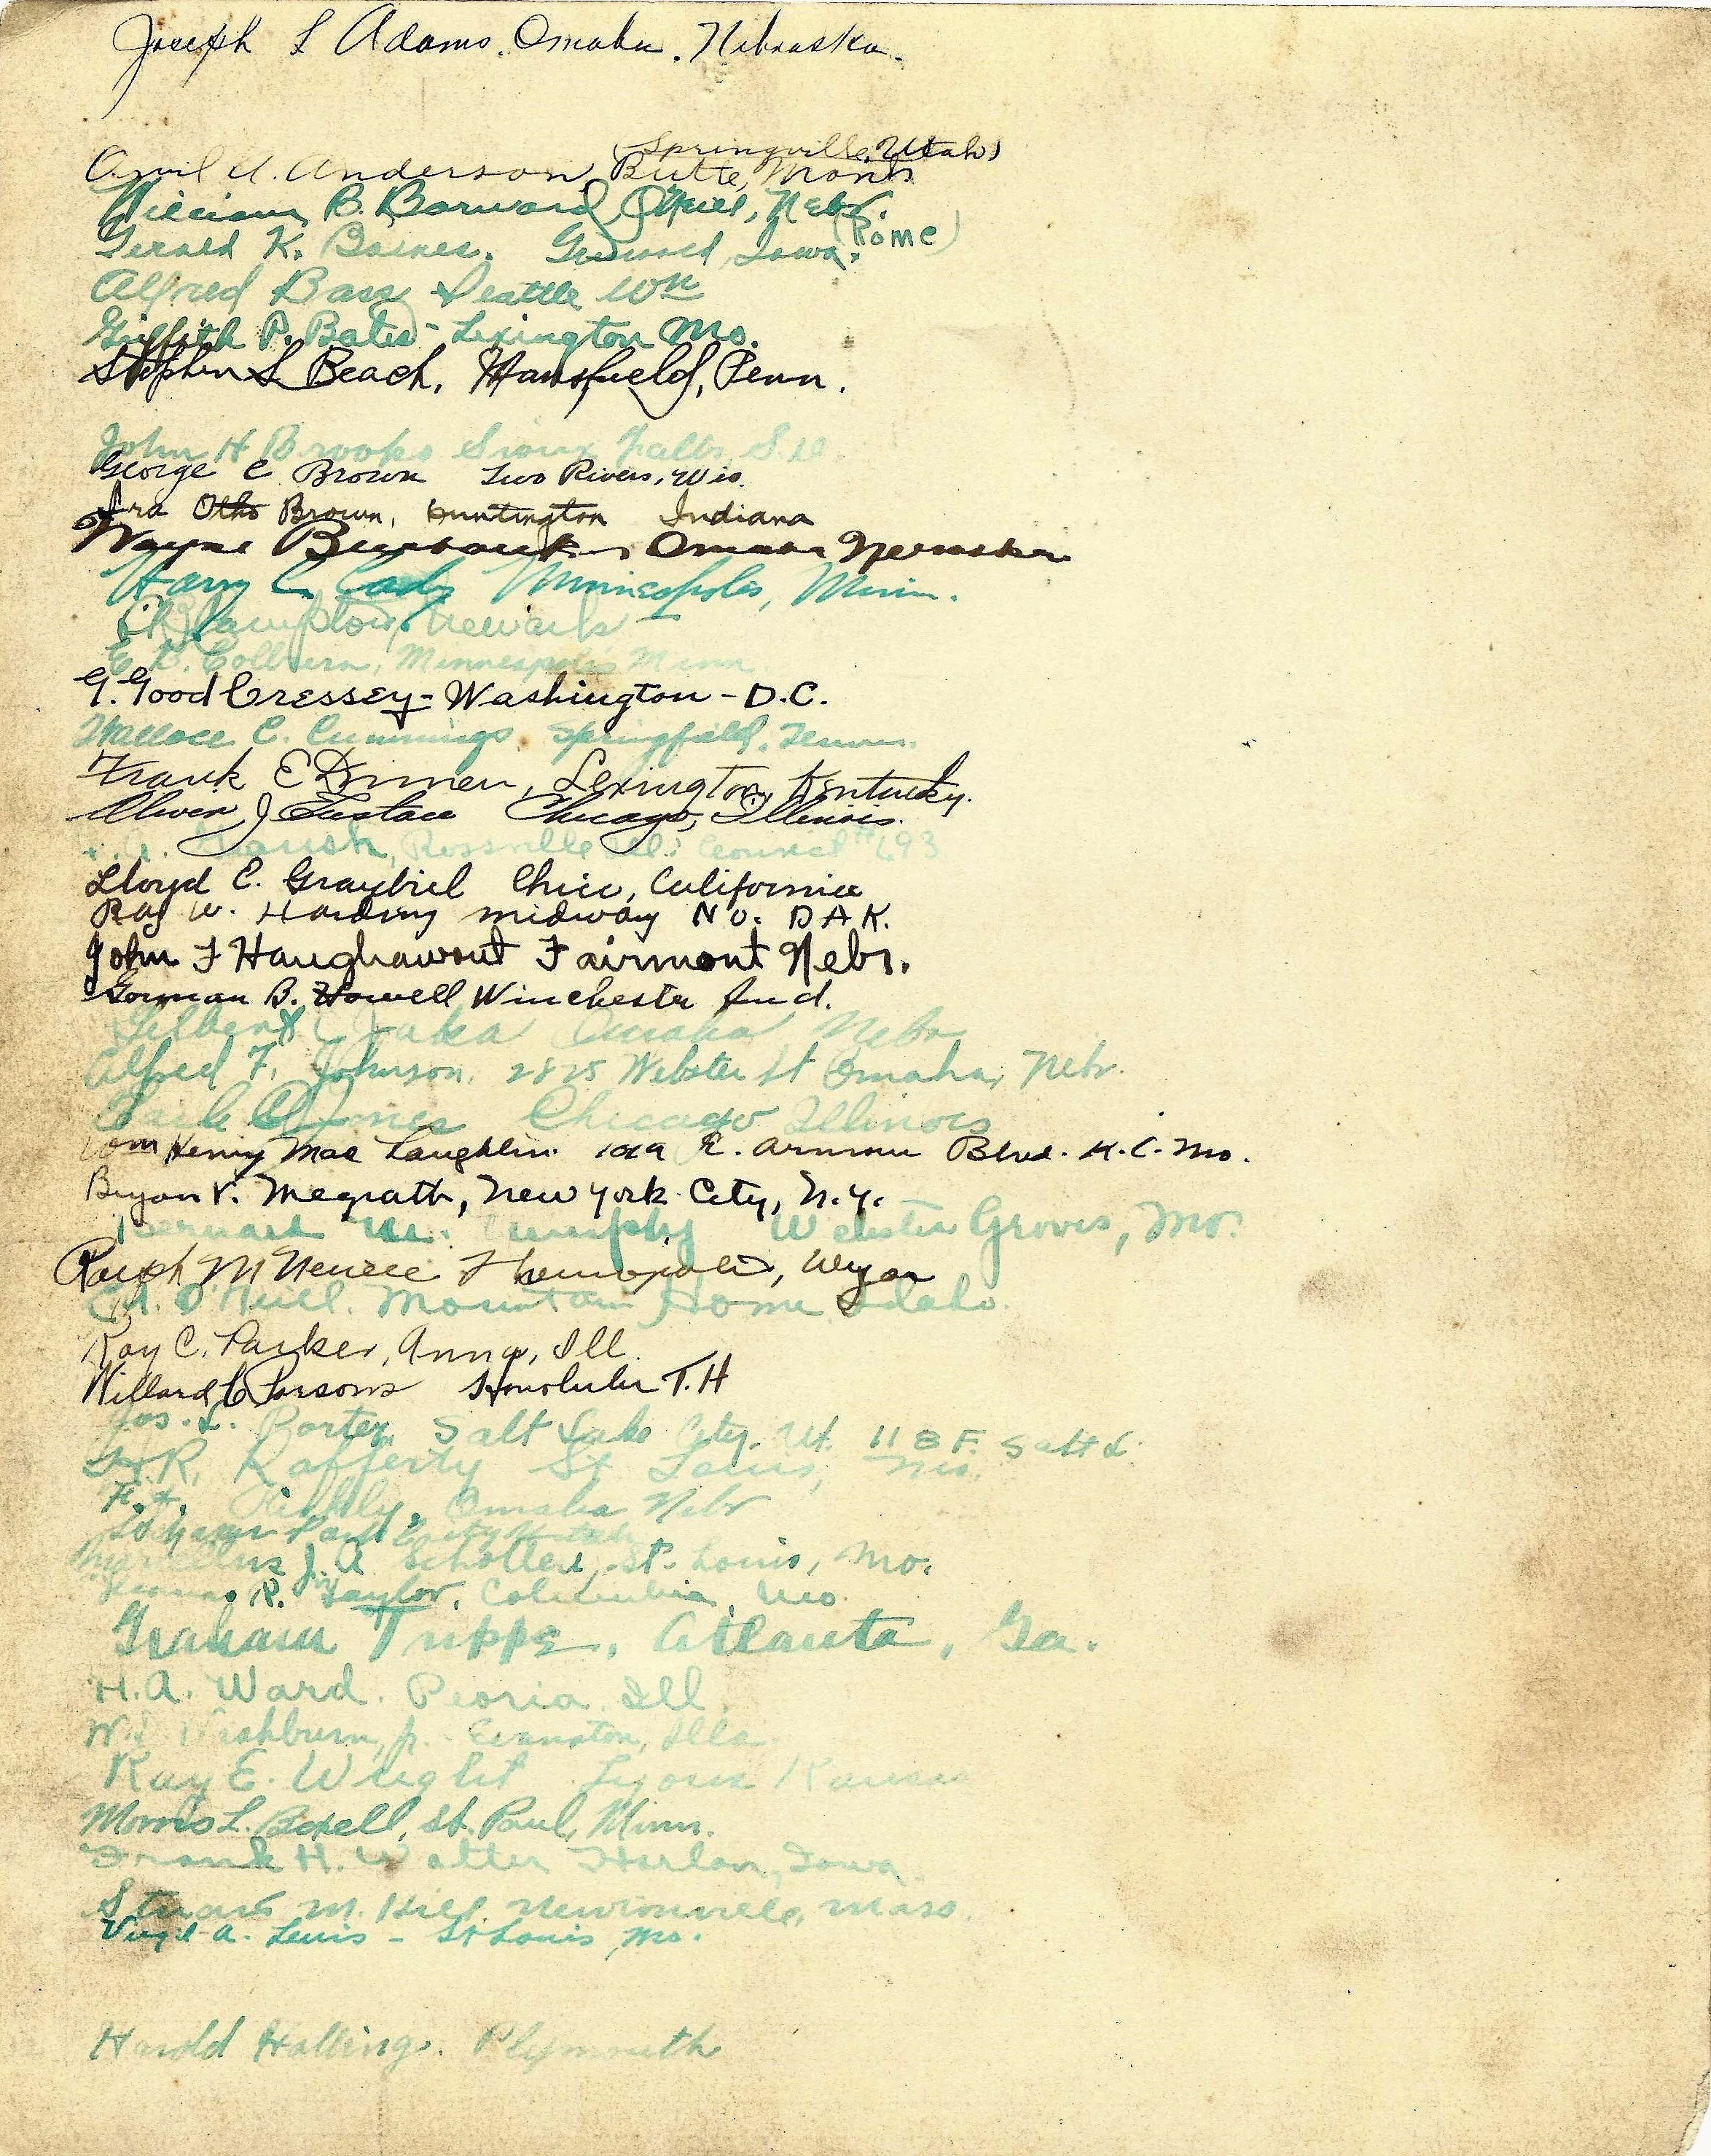 Joseph L Adams. Omaha. Nebraska.
(Springville, Utah)
Anderson, Butte, Mont.
William B. Barward, O'Neill, Nebr.
Gerald K. Barnes. Iowa. (Rome)
Alfred Bass Seattle Wn
Griffith P. Bates - Lexington Mo.
Stephen S Beach, Mansfield, Penn.
John H Brooks Sioux Falls, S.D.
George C Brown Two Rivers, Wis.
Ira Otho Brown, Huntington Indiana
Wayne Burbank, Omaha Nebraska
Harry C. Cady Minneapolis, Minn.
Newark
E. D. Colburn, Minneapolis Minn.
G. Good Cressey - Washington - D.C.
Wallace C. Cummings. Springfield, Tenn.
Frank E Dimen, Lexington, Kentucky.
Oliver J Eustace Chicago, Illinois.
Rossville Ill. Council #693
Lloyd C. Graybiel Chico, California
Ray W. Harding midway No. DAK.
John F Haughawout Fairmont Nebr.
Gorman B. Howell Winchester Ind.
Gilbert Omaha Nebr
Alfred F. Johnson. 2825 Webster St Omaha, Nebr.
Jones Chicago Illinois
Wm Henry Mac Laughlin. 1019 E. Armour Blvd. K.C. Mo.
Bryan V. Megrath, New York City, N.Y.
Bernard M. Murphy Webster Groves, Mo.
Ralph M Thermopolis, Wyo
O'Neill. Mountain Home Idaho.
Roy C. Parker, Anna, Ill.
Willard C Parsons Honolulu T.H
Jos. L. Porter, Salt Lake City. Ut. 118 F. Salt L.
R. Rafferty St Louis, Mo.
F. Omaha Nebr
Park City Utah
Marcellus J. A Schotters, St. Louis, Mo.
R. Taylor, Columbia, Mo.
Graham Trippe, Atlanta, Ga.
H. A. Ward. Peoria, Ill.
Washburn, jr. - Evanston, Ills
Ray E. Wright Lyons Kansas
Morris L. Boxell, St. Paul, Minn.
Frank H. Walter Harlan, Iowa.
Stuart M. Hill Newtonville, Mass.
Virgil A. Lewis - St Louis, Mo.
Harold Halling. Plymouth